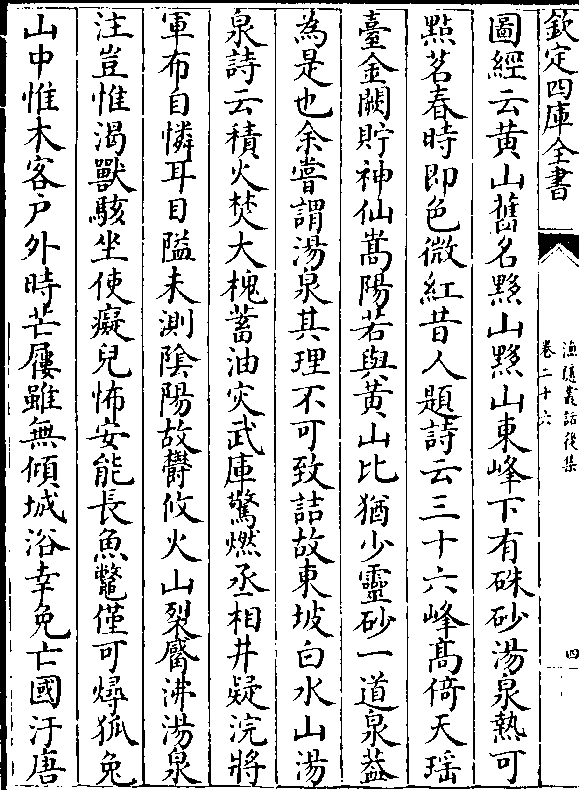 欽定四庫全書
漁隱叢話後集
卷二十六
四
圖經云黄山舊名黟山黟山東峰下有硃砂湯泉熱可
點茗春時即色微紅昔人題詩云三十六峰高倚天瑶
臺金闕貯神仙嵩陽若與黄山比猶少靈砂一道泉葢
為是也余嘗謂湯泉其理不可致詰故東坡白水山湯
泉詩云積火焚大槐蓄油災武庫驚燃丞相井疑浣將
軍布自憐耳目隘未測隂陽故欝攸火山裂觱沸湯泉
注豈惟渴獸駭坐使癡兒怖安能長魚鼈僅可燖狐兔
山中惟木客户外時芒屨雖無傾城浴幸免亡國汙唐